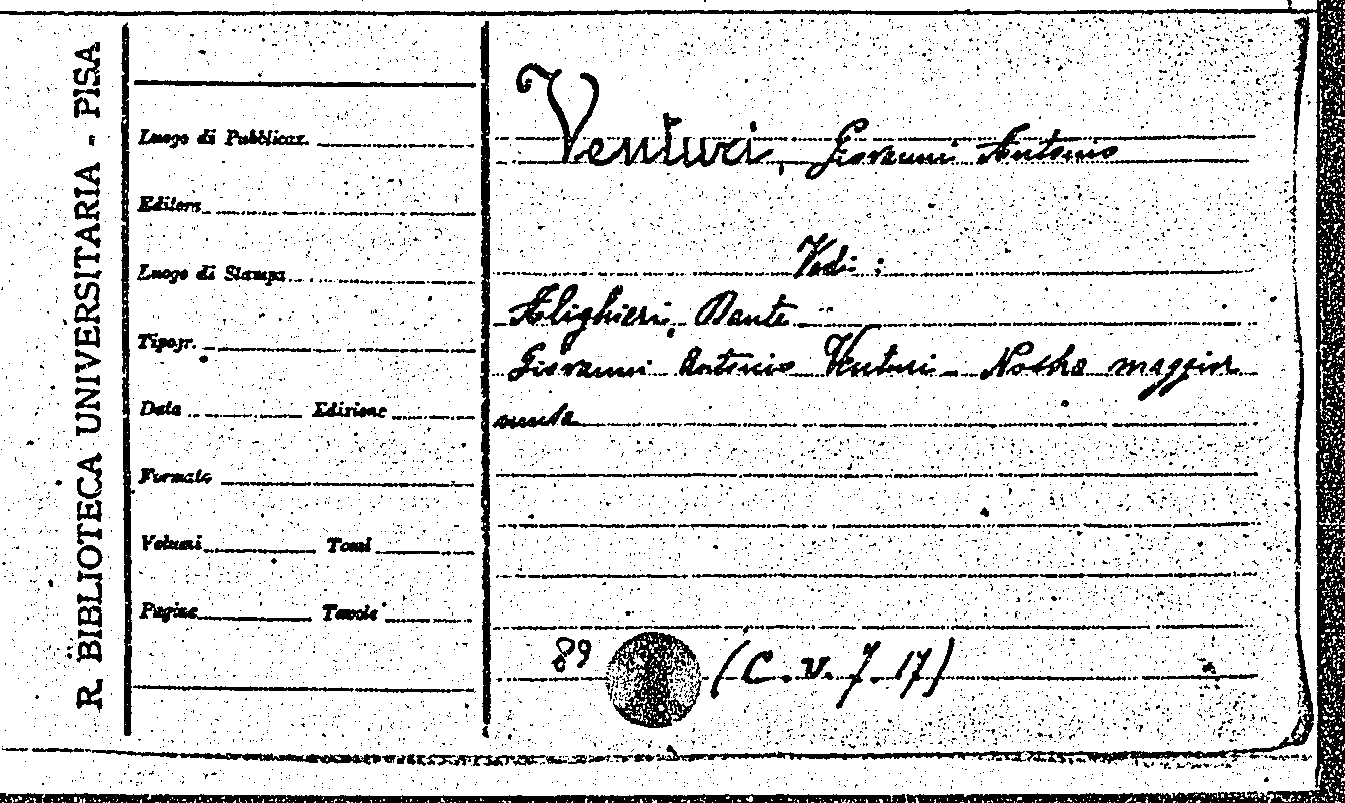 R. BIBLIOTECA UNIVERSITARIA - PISA
Luogo di Pubblicaz.
Editore
Luogo di Stampa
Tipogr.
Data Edizione
Formato
Volumi Tomi
Pagine Tavole
Venturi, Giovanni Antonio
Vedi:
Alighieri, Dante
Giovanni Antonio Venturi - Nostra maggior
musa
89 (C. v. 7. 17)